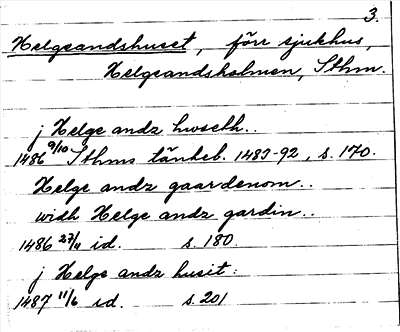 3.
Helgeandshuset, förr sjukhus,
Helgeandsholmen, Sthm.
j Helge andz hwsebh..
1486 9/10 Sthms tänkeb. 1483-92, s. 170.
Helge andz gaardenom..
widh Helge andz gardin..
1486 27/11 id. s. 180.
j Helge andz husit:
1487 11/6 id. s. 201